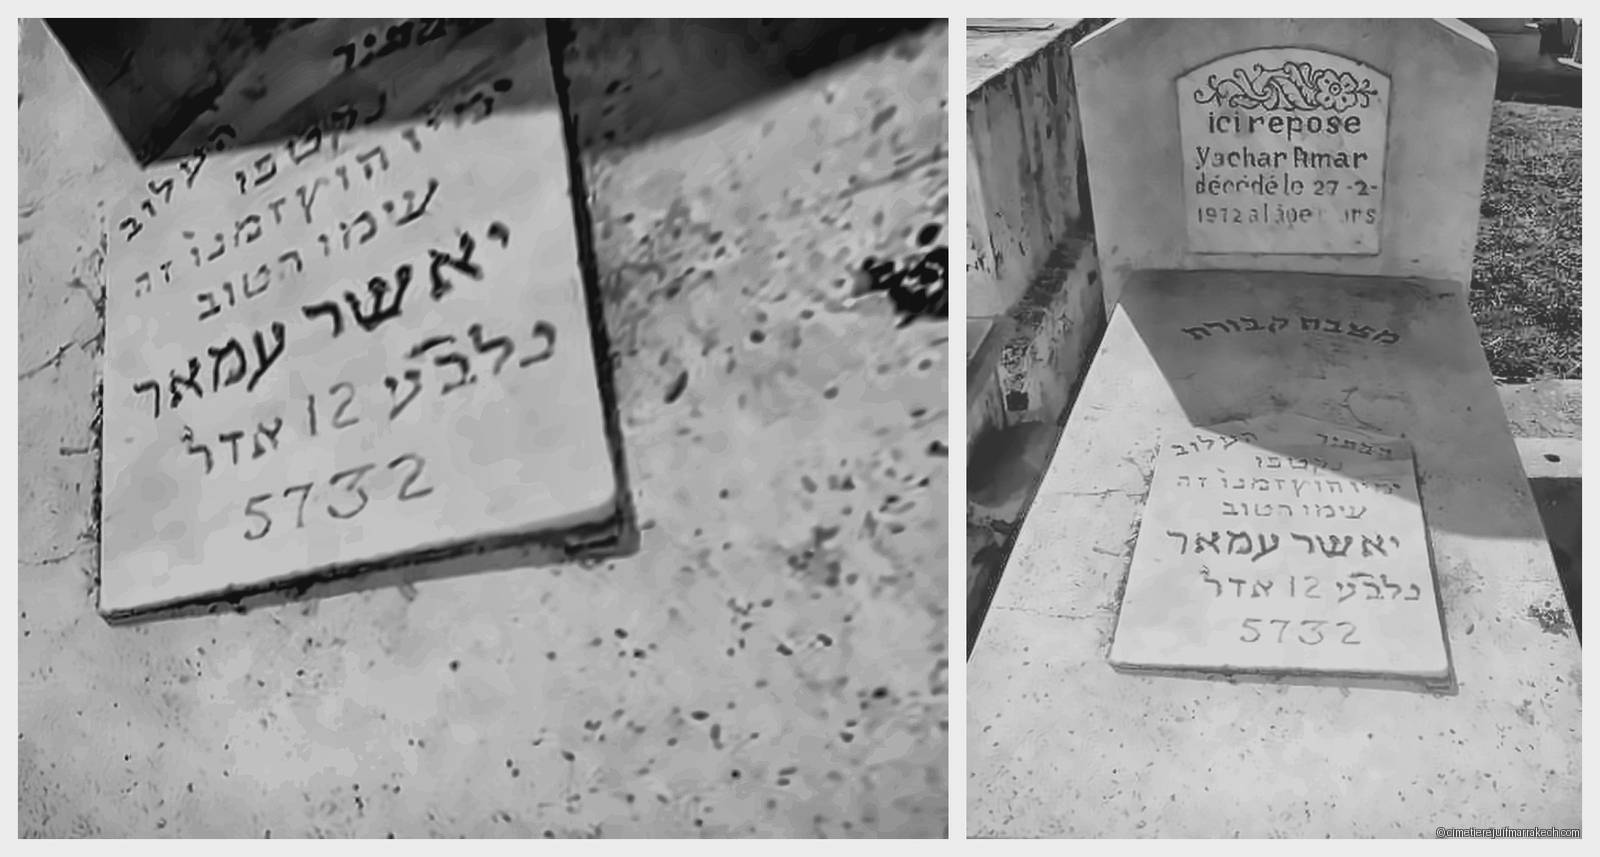 העלוב
נקטפו
ימיו חוץ זמנו זה
עימו הטוב
יאשר עמאר
נלב״עי 12 אדר
5732
ici repose
Yachar Amar
décédé le 27-2-
1972 a l'age
מצבת קבורת
העלוב
נקטפו
ימיו חוץ זמנו זה
עימו הטוב
יאשר עמאר
נלב״עי 12 אדר
5732
©cimetierejuifmarrakech.com